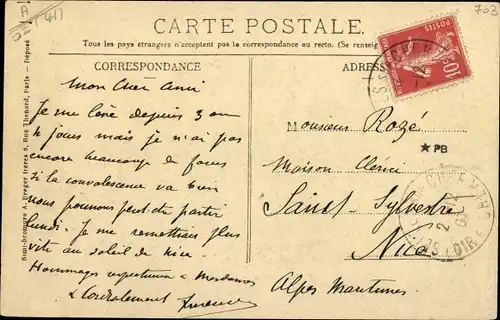 A
(41)
703
CARTE POSTALE.
Tous les pays étrangers n'acceptent pas la correspondance au recto. (Se renseig
CORRESPONDANCE
ADRES
POSTES
10
Mon Cher Ami
Je me lève depuis 3 ou
4 jours mais je n'ai pas
encore beaucoup de forces
Si la convalescence va bien
nous pourrons peut-être partir
lundi. Je me remettrais plus
vite au soleil de Nice.
Hommages respectueux à Mesdames
& Cordialement
Monsieur Rozé
★PB
Maison
Saint-Sylvestre
Nice
Alpes Maritimes
Semi-bromure A. Breger frères 9, Rue Thénard, Paris — Déposé